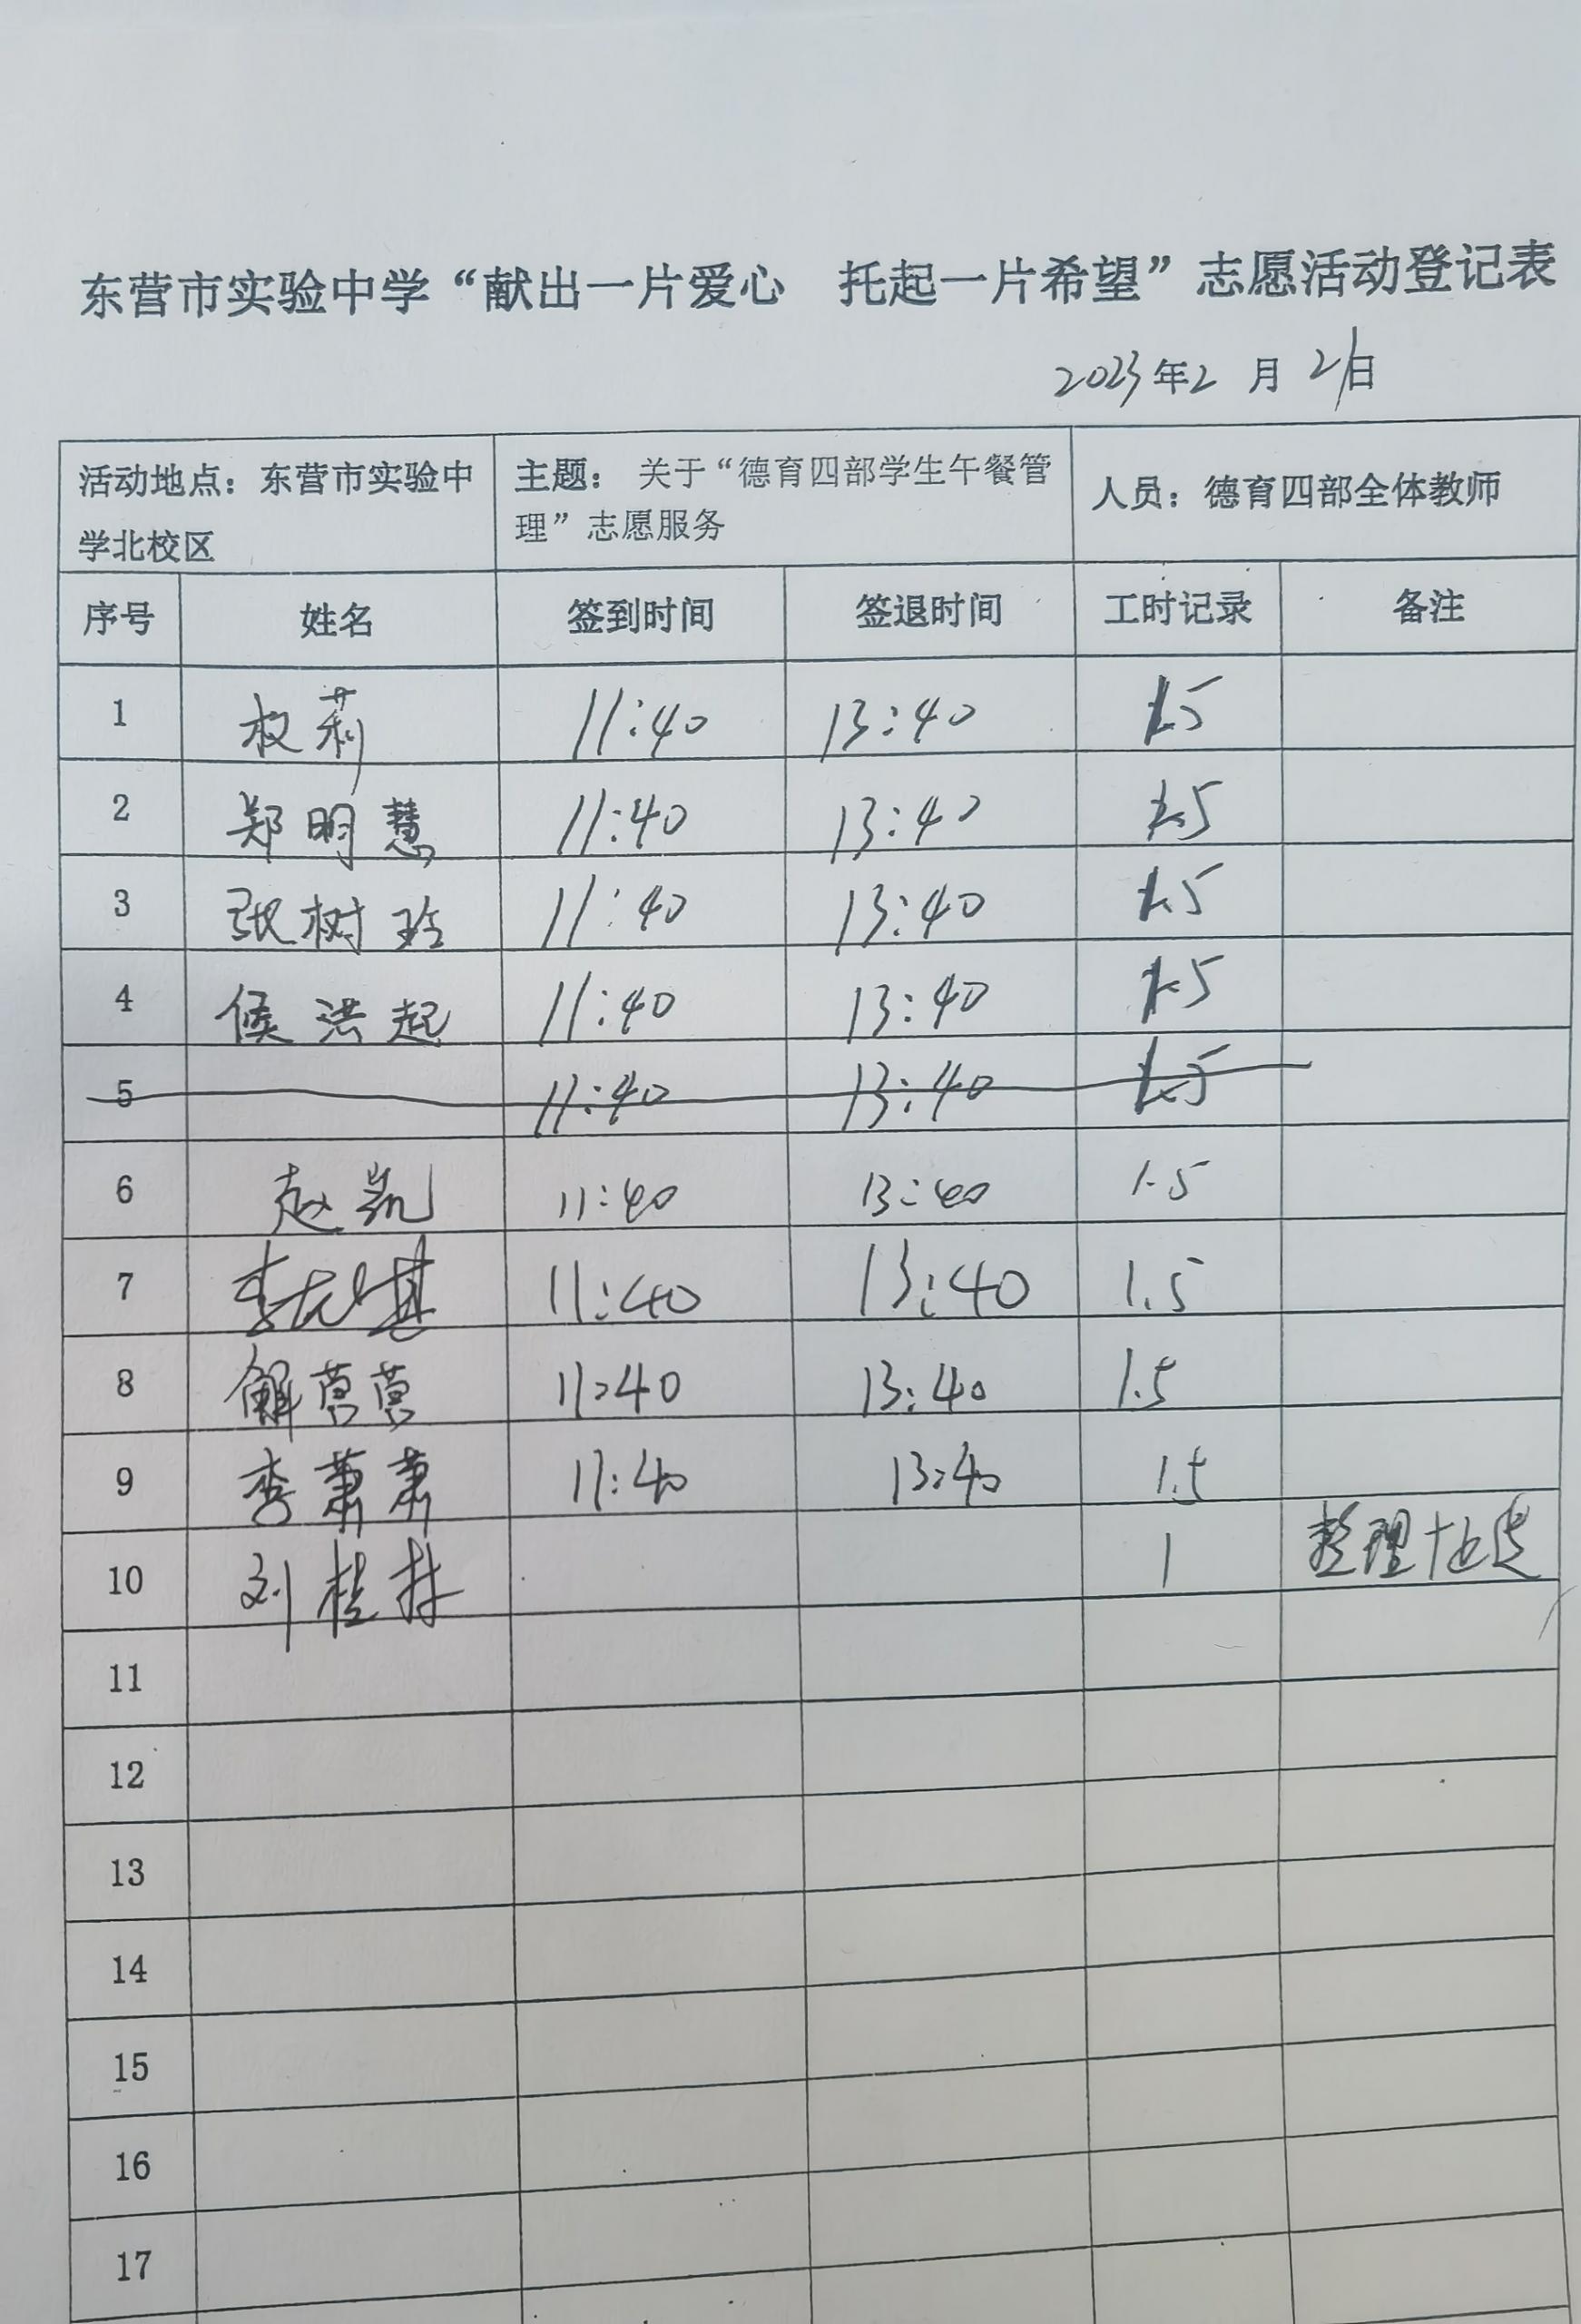 东营市实验中学“献出一片爱心 托起一片希望”志愿活动登记表
2023年2月21日
活动地点：东营市实验中
学北校区
主题： 关于“德育四部学生午餐管
理”志愿服务
人员：德育四部全体教师
序号 姓名 签到时间 签退时间 工时记录 备注
1 权莉 11:40 13:40 1.5
2 郑明慧 11:40 13:40 1.5
3 张树玲 11:40 13:40 1.5
4 侯洪起 11:40 13:40 1.5
5 11:40 13:40 1.5
6 赵凯 11:40 13:40 1.5
7 李 11:40 13:40 1.5
8 解 11:40 13:40 1.5
9 李萧萧 11:40 13:40 1.5
10 刘桂林 1 整理
11
12
13
14
15
16
17